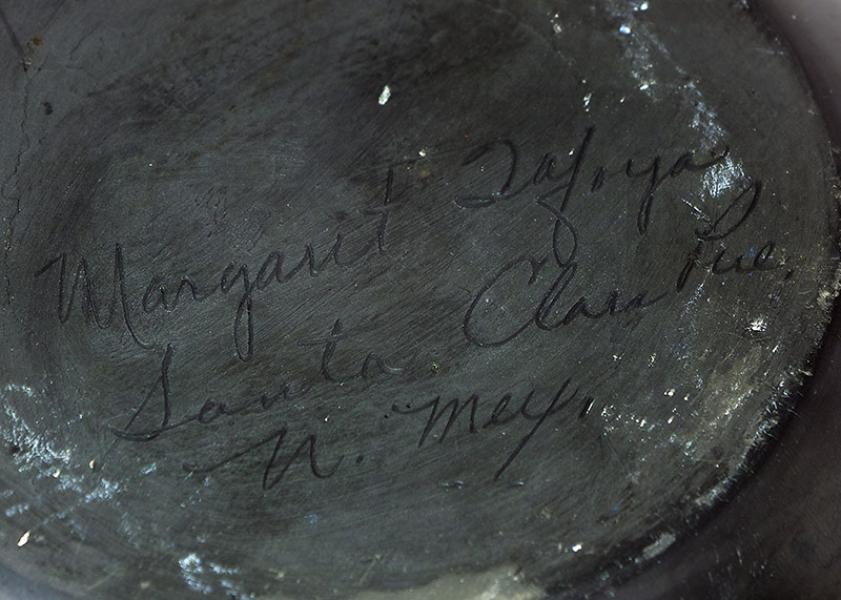 Margaret Tafoya
Santa Clara Pue.
N. Mex.